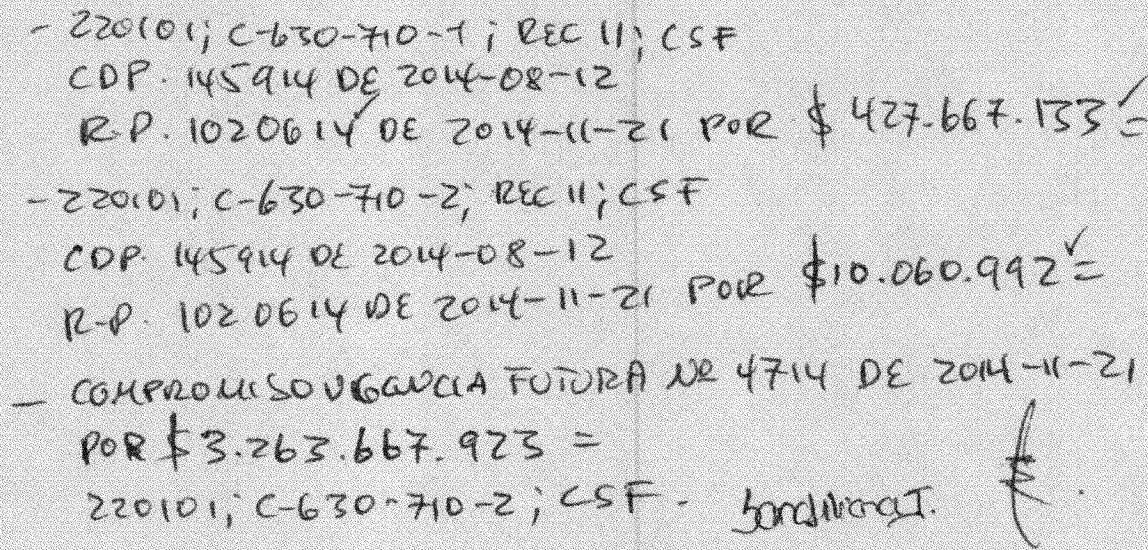 - 220101; C-630-710-1; REC 11; CSF
CDP. 145914 DE 2014-08-12
R.P. 1020614 DE 2014-11-21 POR $ 427.667.133=
- 220101; C-630-710-2; REC 11; CSF
CDP. 145914 DE 2014-08-12
R.P. 1020614 DE 2014-11-21 POR $10.060.992=
- COMPROMISO VIGENCIA FUTURA Nº 4714 DE 2014-11-21
POR $3.263.667.923=
220101; C-630-710-2; CSF.